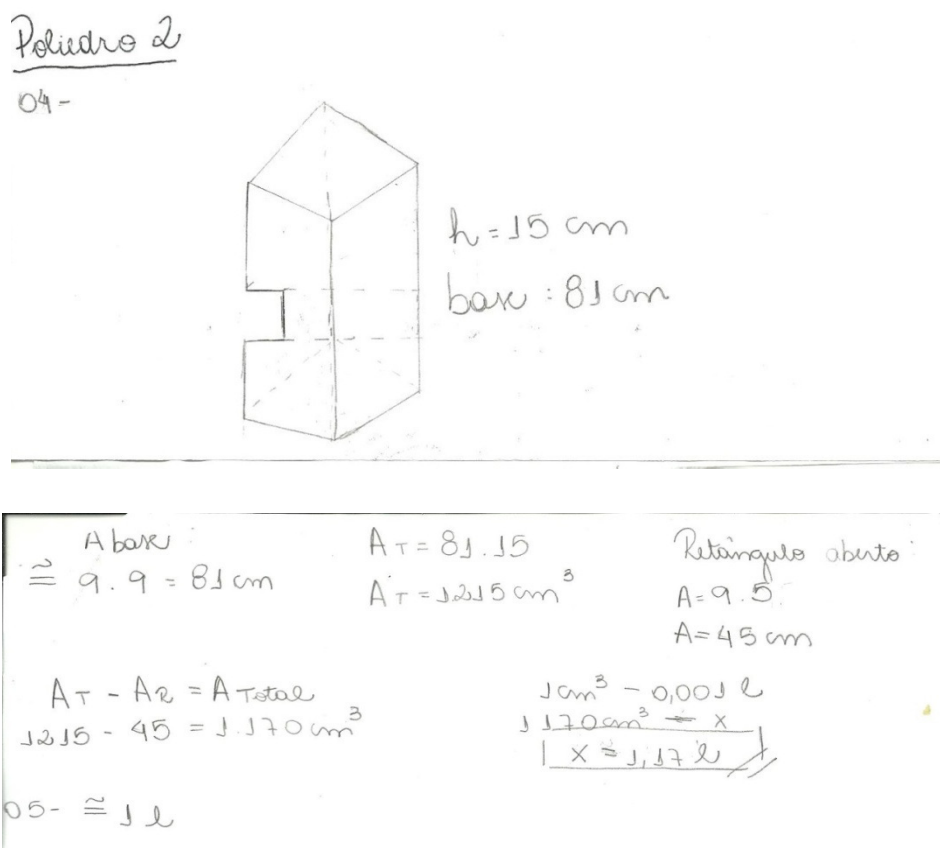 Poliedro 2
04-
h = 15 cm
base : 81 cm
A base :
≅ 9 . 9 = 81 cm
A T = 81 . 15
A T = 1215 cm³
Retângulo aberto :
A = 9 . 5
A = 45 cm
A T - A R = A Total
1215 - 45 = 1.170 cm³
1 cm³ - 0,001 l
1170 cm³ - x
x = 1,17 l
05- ≅ 1 l